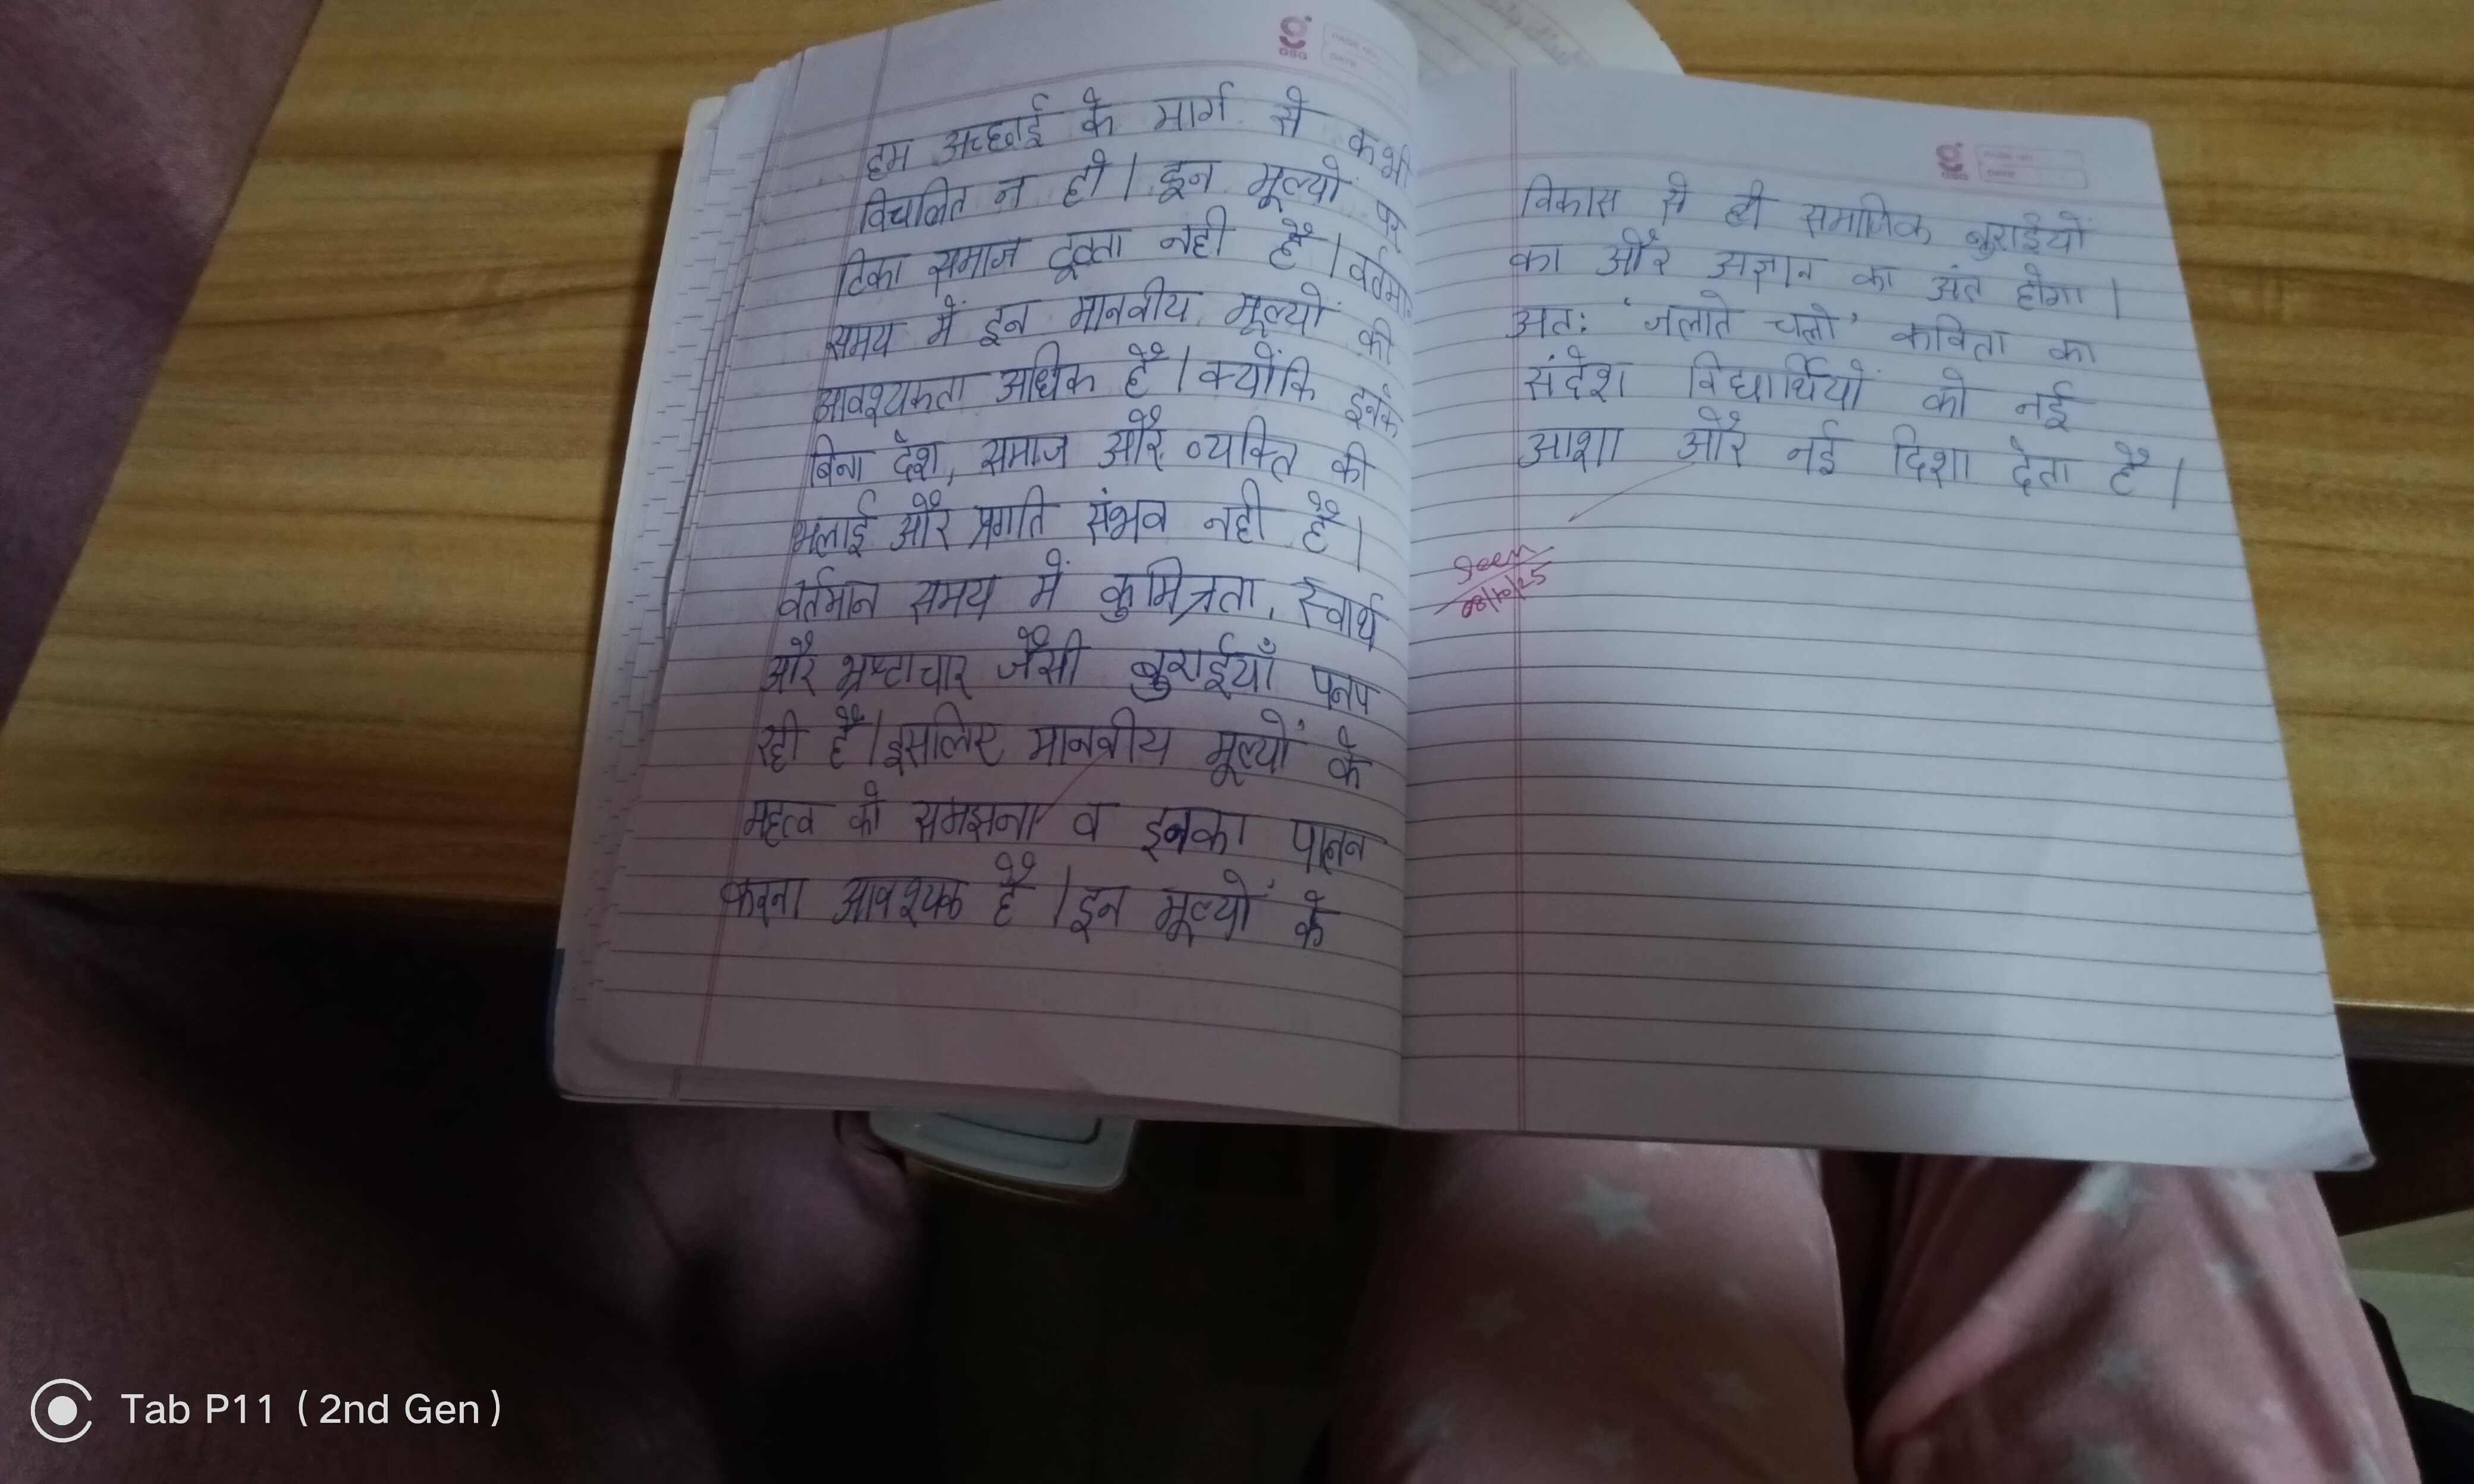 हम अच्छाई के मार्ग से कभी
विचलित न हो। इन मूल्यों पर
टिका समाज टूटता नही है। वर्तमा
समय में इन मानवीय मूल्यों की
आवश्यकता अधिक है। क्योंकि इनके
बिना देश, समाज और व्यक्ति की
भलाई और प्रगति संभव नही है।
वर्तमान समय में कुमित्रता, स्वार्थ
और भ्रष्टाचार जैसी बुराईयाँ पनप
रही है। इसलिए मानवीय मूल्यों के
महत्व को समझना व इनका पालन
करना आवश्यक है। इन मूल्यों के
विकास से ही समाजिक बुराईयों
का और अज्ञान का अंत होगा।
अतः 'जलाते चलो' कविता का
संदेश विद्यार्थियों को नई
आशा और नई दिशा देता है।
Seen
08/10/25
GSG
PAGE NO.
DATE
GSG
PAGE NO.
DATE
Tab P11 (2nd Gen)